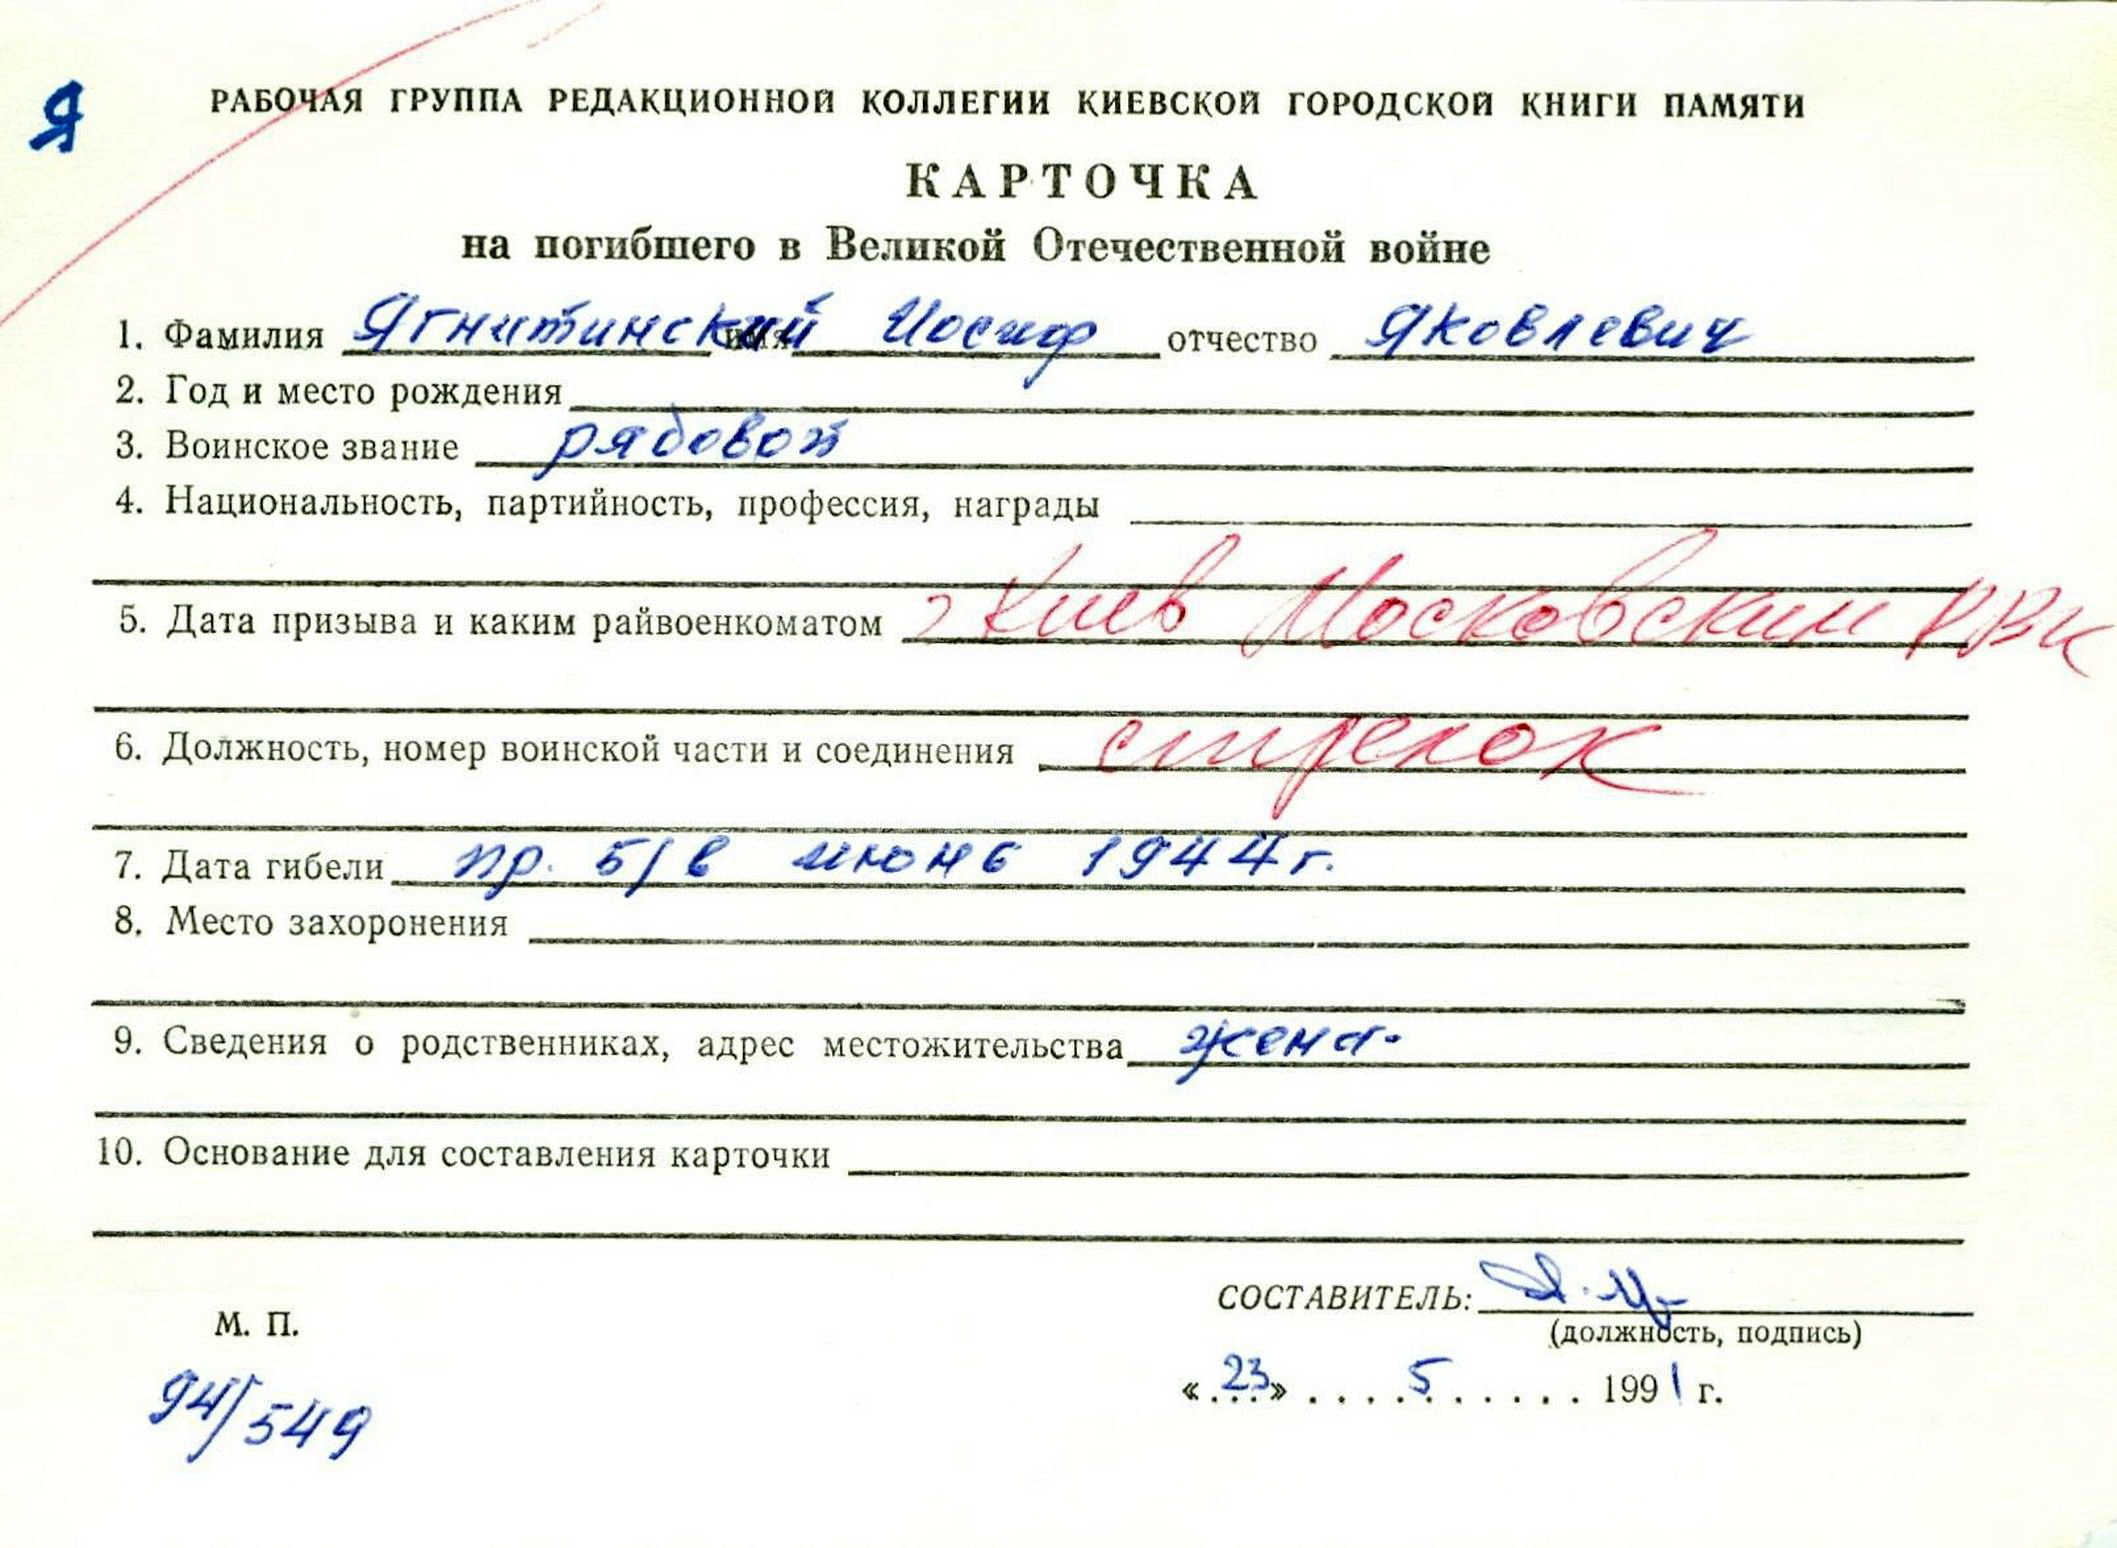 Я
РАБОЧАЯ ГРУППА РЕДАКЦИОННОЙ КОЛЛЕГИИ КИЕВСКОЙ ГОРОДСКОЙ КНИГИ ПАМЯТИ
КАРТОЧКА
на погибшего в Великой Отечественной войне
1. Фамилия Ягнитинский имя Иосиф отчество Яковлевич
2. Год и место рождения
3. Воинское звание рядовой
4. Национальность, партийность, профессия, награды
5. Дата призыва и каким райвоенкоматом г Киев Московским РВК
6. Должность, номер воинской части и соединения стрелок
7. Дата гибели пр. б/в июнь 1944 г.
8. Место захоронения
9. Сведения о родственниках, адрес местожительства жена.
10. Основание для составления карточки
СОСТАВИТЕЛЬ:
М. П.
(должность, подпись)
94/549
«23» 5 1991 г.